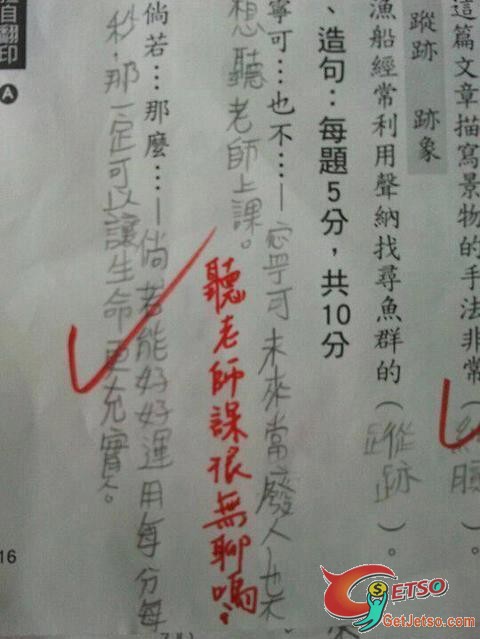 這篇文章描寫景物的手法非常(細膩)。
蹤跡 跡象
漁船經常利用聲納找尋魚群的(蹤跡)。
、造句：每題5分，共10分
寧可…也不…—寧可未來當廢人也不
想聽老師上課。
聽老師課很無聊嗎？
倘若…那麼…—倘若能好好運用每分每
秒，那一定可以讓生命更充實。
自翻印
A
16
GETSO
GetJetso.com